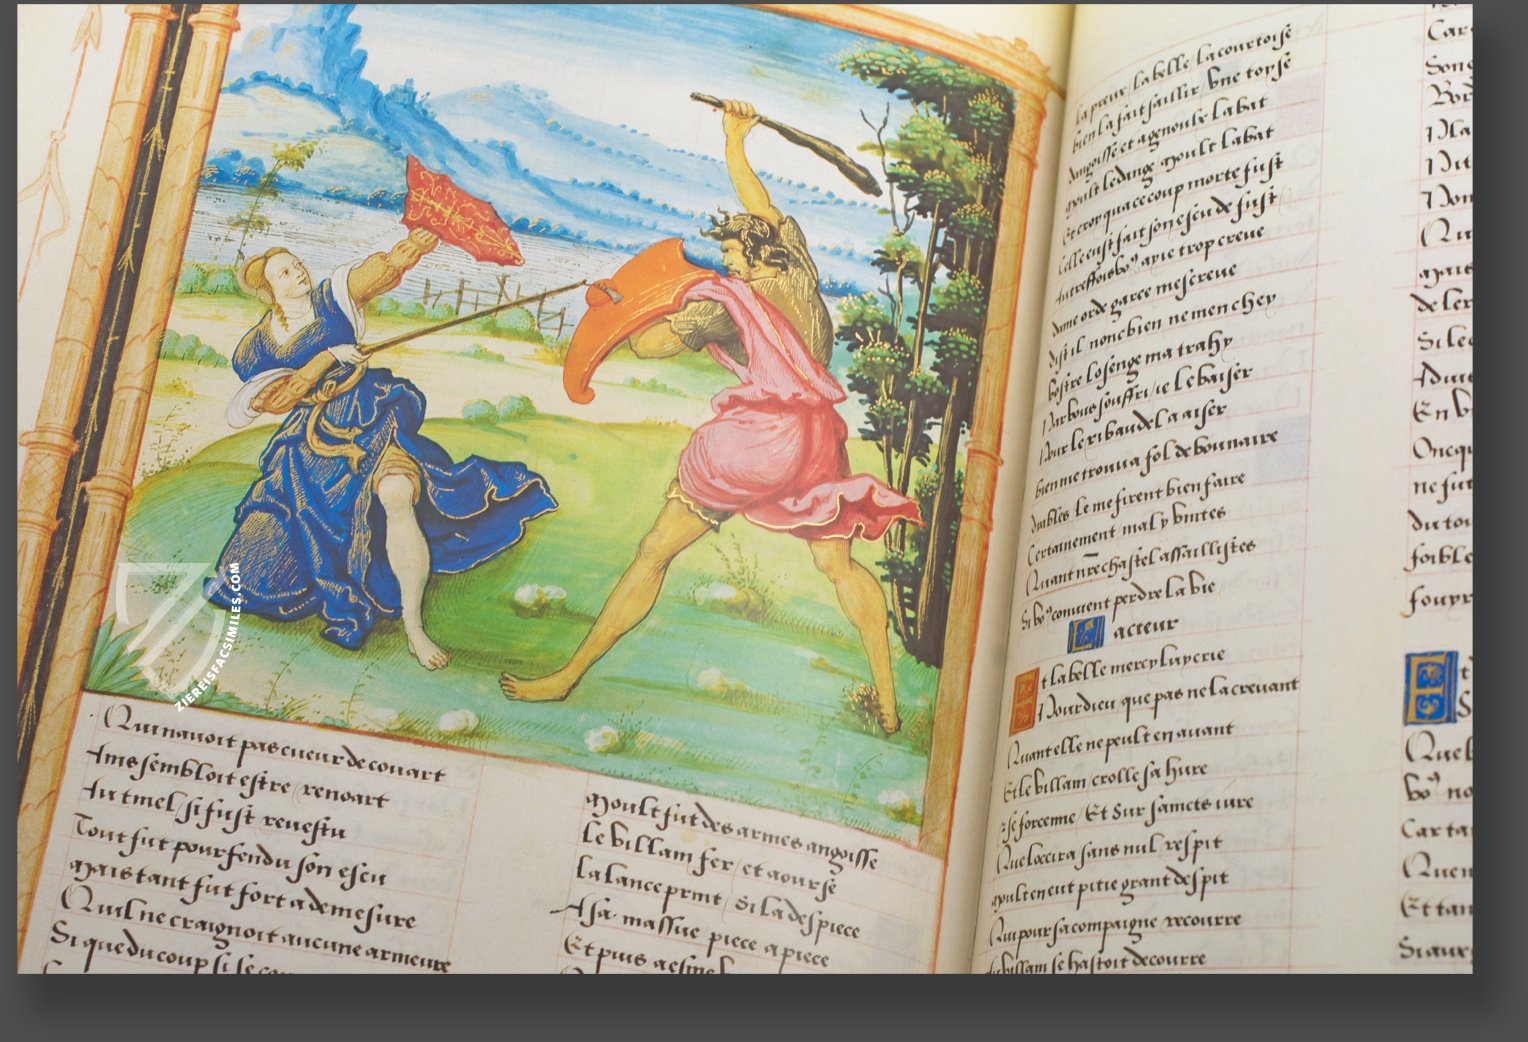 Qui navoit pas cueur de couart
Ains sembloit estre renoart
Tout fut pourfendu son escu
Mais tant fut fort a demesure
Quil ne craignoit aucune armeure
Si que du coup si se
Moult fut des armes angoisse
Le villain fer et aourse
La lance print si la despiece
A sa massue piece a piece
Et puis
la preux la belle la courtoise
bien la fait saillir une toyse
Angoisse et agenoulx labat
Moult ledange moult labat
Et croy qua ce coup morte fust
Celle eust fait son escu de fust
Autreffois vo9 ay ie trop creue
Dame orde garce mescreue
Dist il nonc bien ne men chey
Vostre losenge ma trahy
Par vous souffri ie le baiser
Pour le ribaudel a aiser
bien me trouva fol debonnaire
Diables le me firent bien faire
Certainement mal y vintes
Quant nre chastel assaillistes
Si vo9 convient perdre la vie
acteur
Et la belle mercy luy crie
Pour dieu que pas ne la crevant
Quant elle ne peult en avant
Et le villain crolle sa hure
Se forcenne Et Sur saincts iure
Que loccira sans nul respit
Moult en eut pitie grant despit
Qui pour sa compaigne recourre
Au villain se hastoit de courre
Car
de ler
Si le
En b
Oncq
ne fut
du tou
foible
fouyr
Quel
vo9 no
Car ta
Et tan
ZIEREISFACSIMILES.COM